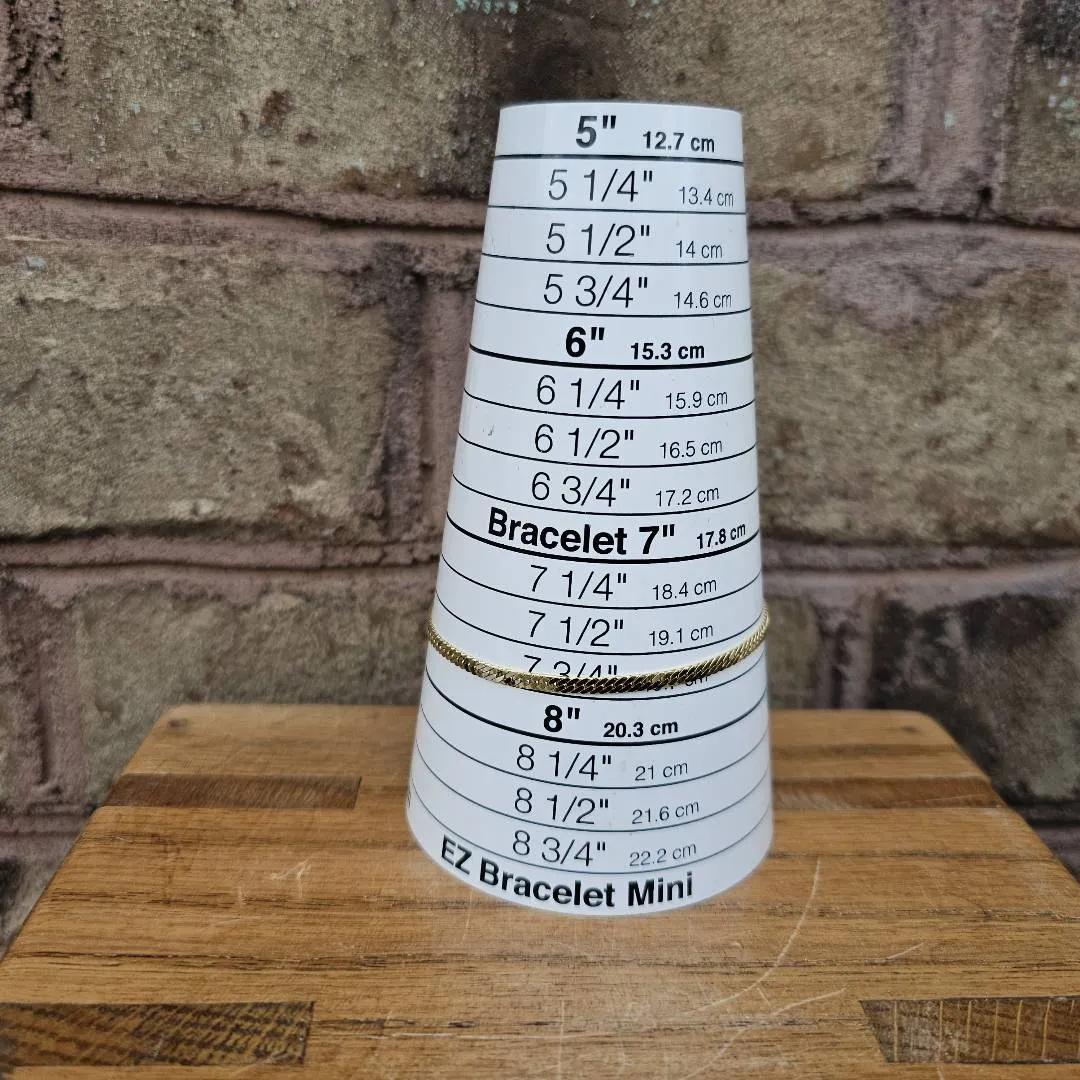 5" 12.7 cm
5 1/4" 13.4 cm
5 1/2" 14 cm
5 3/4" 14.6 cm
6" 15.3 cm
6 1/4" 15.9 cm
6 1/2" 16.5 cm
6 3/4" 17.2 cm
Bracelet 7" 17.8 cm
7 1/4" 18.4 cm
7 1/2" 19.1 cm
7 3/4" cm
8" 20.3 cm
8 1/4" 21 cm
8 1/2" 21.6 cm
8 3/4" 22.2 cm
EZ Bracelet Mini